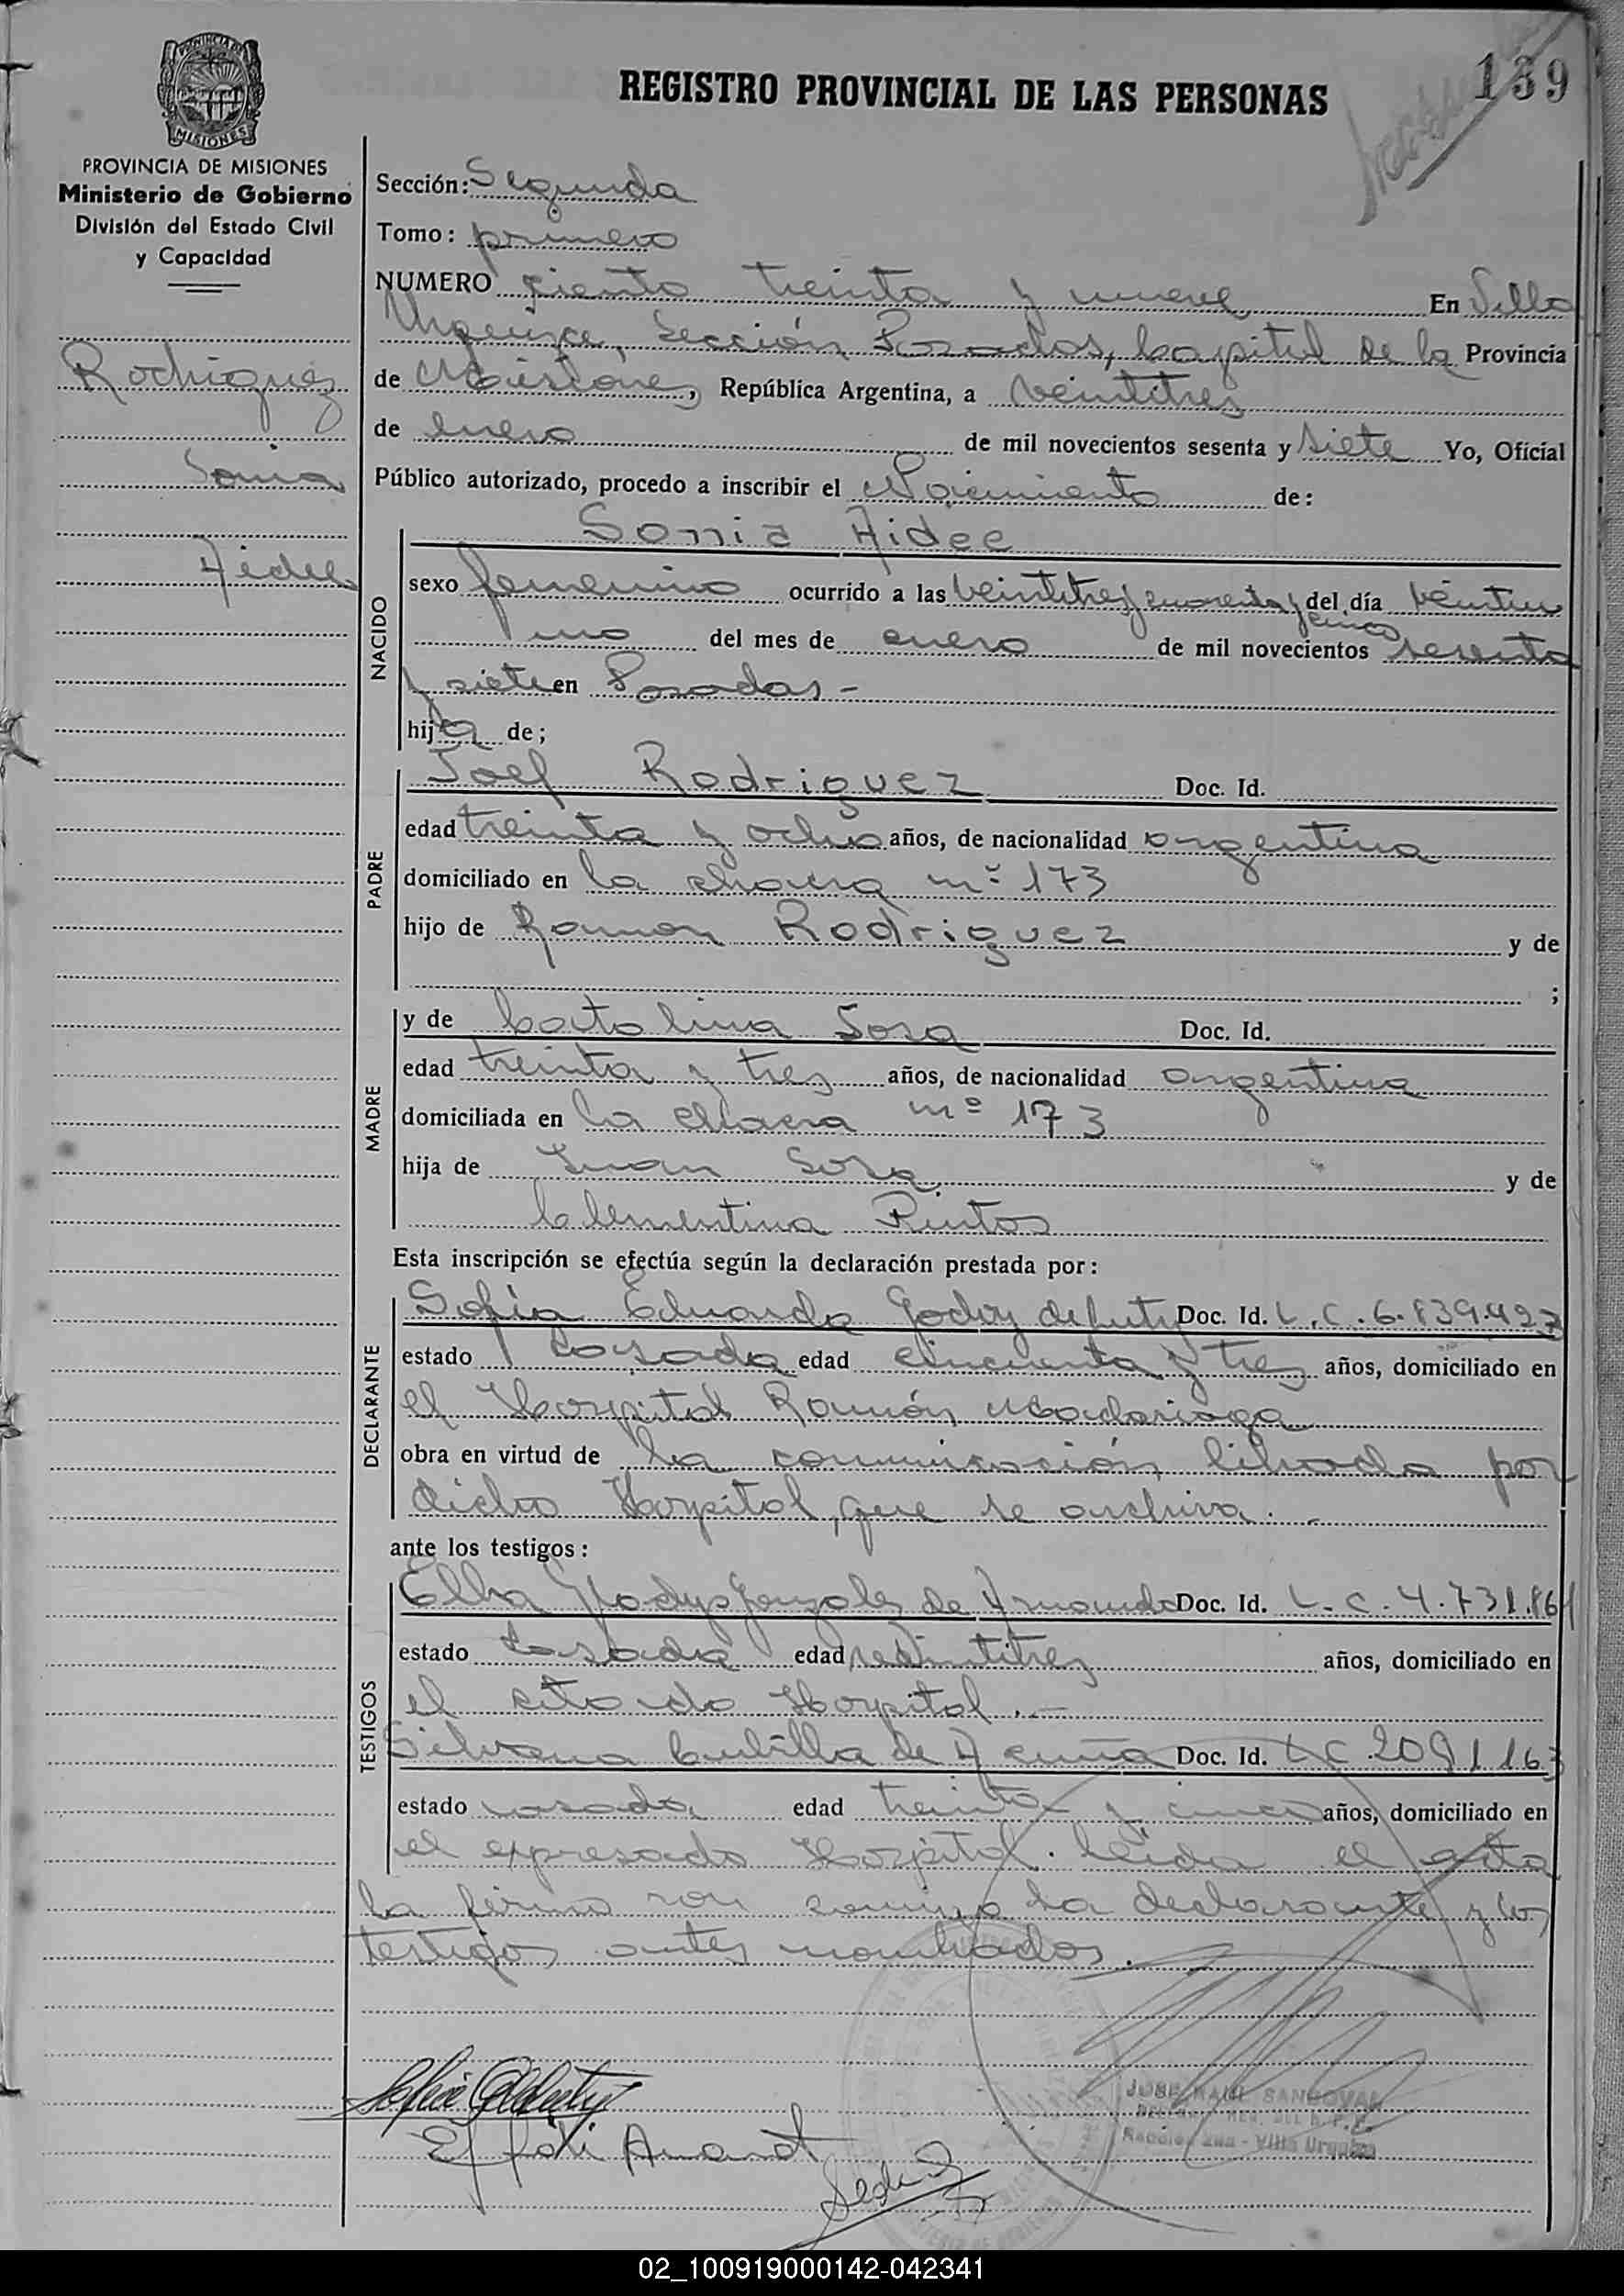 REGISTRO PROVINCIAL DE LAS PERSONAS
139
PROVINCIA DE
MISIONES
PROVINCIA DE MISIONES
Ministerio de Gobierno
División del Estado Civil
y Capacidad
Rodriguez
Sonia
Aidee
Sección: Segunda
Tomo: primero
NUMERO ciento treinta y nueve En Villa
Urquiza, Sección Posadas, Capital de la Provincia
de Misiones, República Argentina, a veintitres
de enero de mil novecientos sesenta y siete Yo, Oficial
Público autorizado, procedo a inscribir el Nacimiento de:
NACIDO
Sonia Aidee
sexo femenino ocurrido a las veintitres cuarenta y cinco del día veintiu
uno del mes de enero de mil novecientos sesenta
y siete en Posadas -
hija de;
PADRE
Joel Rodriguez Doc. Id.
edad treinta y ocho años, de nacionalidad argentina
domiciliado en la chacra nº 173
hijo de Ramon Rodriguez y de
;
MADRE
y de Catalina Sosa Doc. Id.
edad treinta y tres años, de nacionalidad argentina
domiciliada en la chacra nº 173
hija de Juan Sosa y de
Clementina Pintos
Esta inscripción se efectúa según la declaración prestada por:
DECLARANTE
Sofia Eduarda Godoy de Doc. Id. L.C. 6.839.427
estado casada edad cincuenta y tres años, domiciliado en
el Hospital Ramón Madariaga
obra en virtud de la comunicación librada por
dicho Hospital, que se archiva. -
ante los testigos:
TESTIGOS
Elba Gladys Gonzales de Doc. Id. L.C. 4.731.864
estado casada edad veintitres años, domiciliado en
el citado Hospital. -
Silvana Cubilla de Acuña Doc. Id. L C 2091163
estado casada edad treinta y cinco años, domiciliado en
el expresado Hospital. Leida el acta
la firma con conmigo la declarante y los
testigos antes nombrados.
JOSE RAUL SANDOVAL
Villa Urquiza
02_100919000142-042341